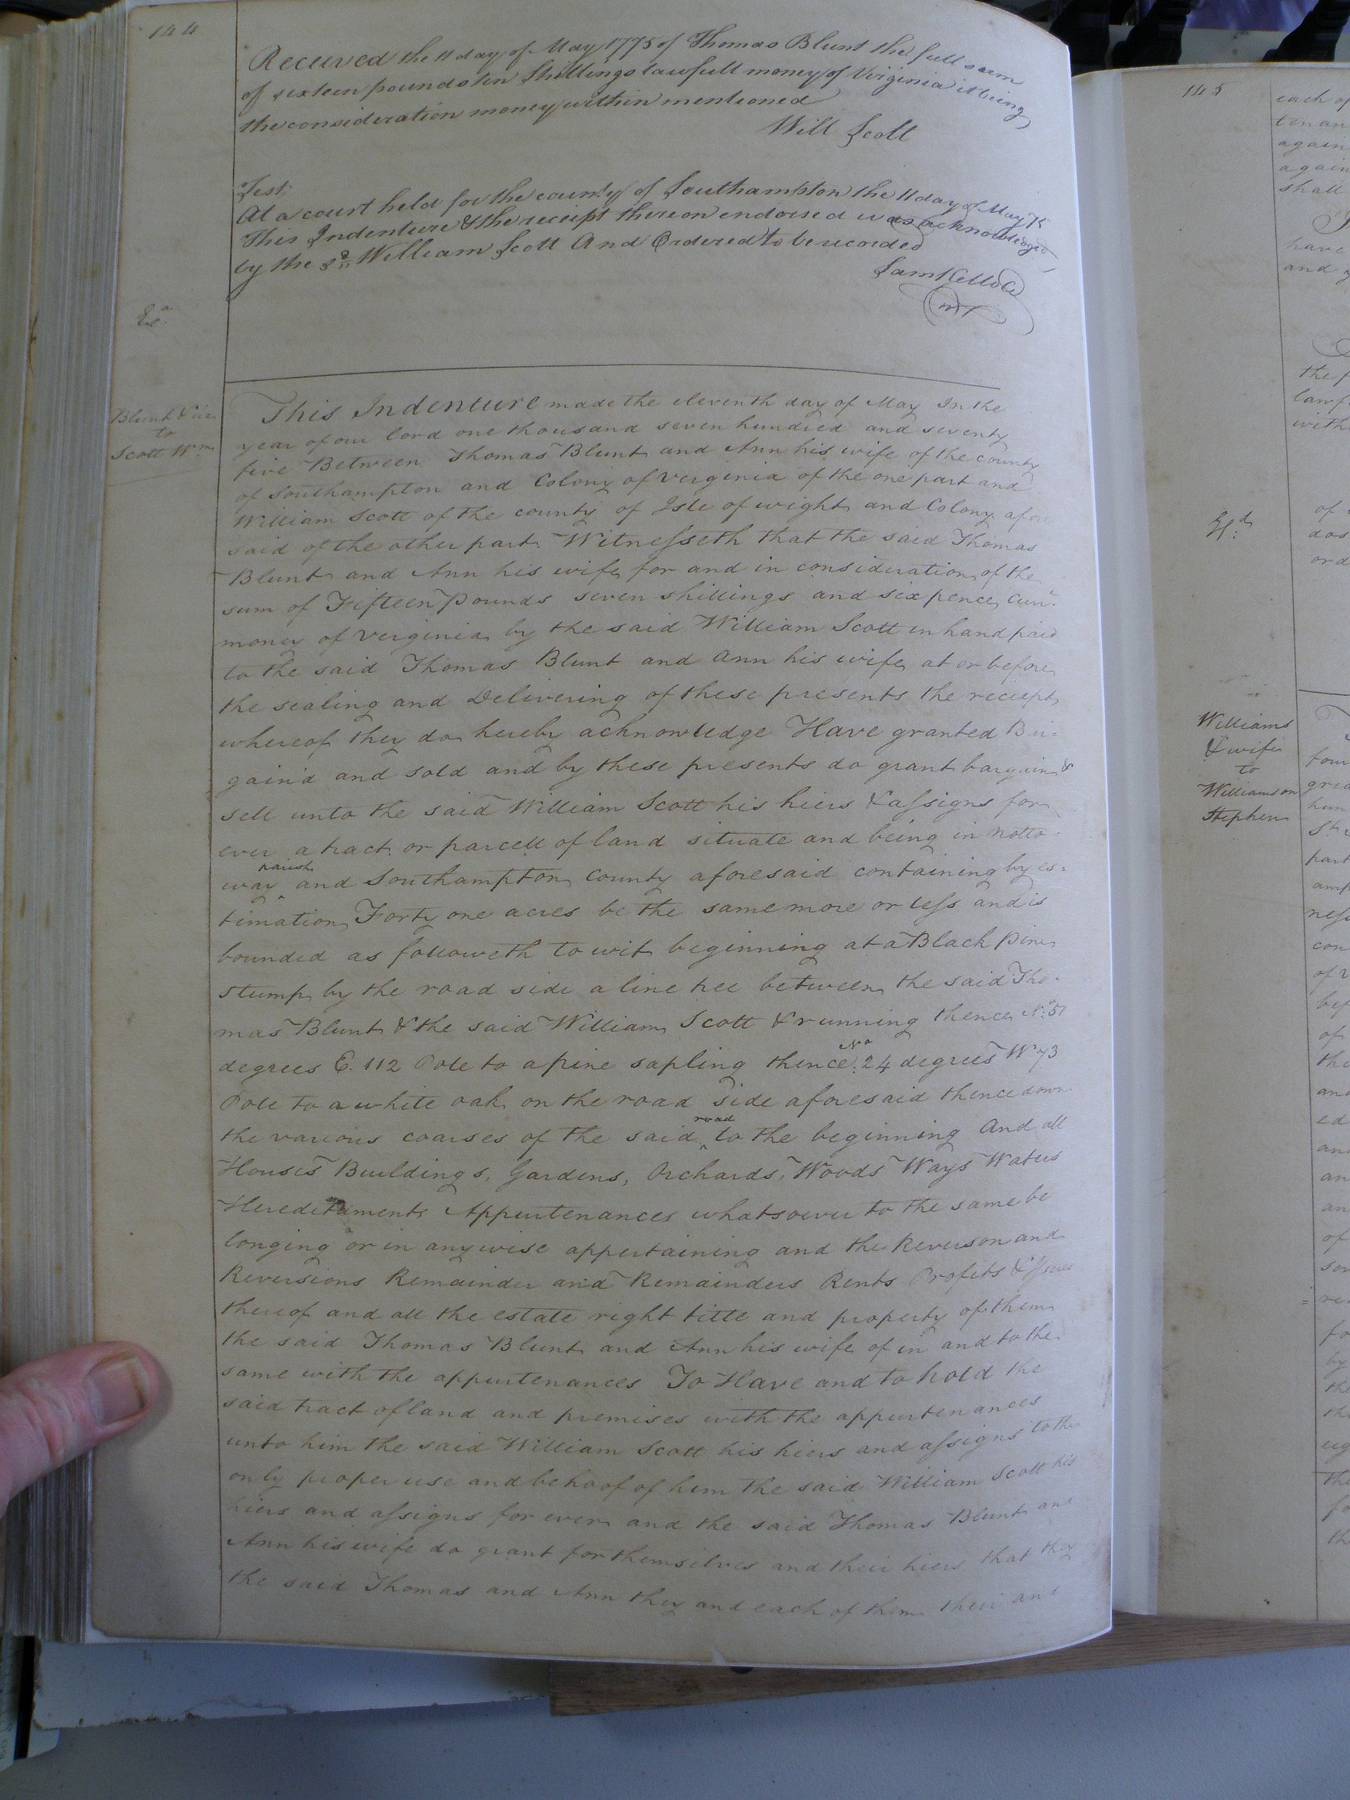 144
Received the 11 day of May 1775 of Thomas Blunt the full sum
of sixteen pounds ten Shillings lawfull money of Virginia it being
the consideration money within mentioned
Will Scott
Test
At a court held for the county of Southampton the 11 day of May 75
This Indenture & the receipt thereon endorsed was acknowledged
by the sd. William Scott And Ordered to be recorded
Sam Kello
Blunt & wife
to
Scott Wm
This Indenture made the eleventh day of May In the
year of our lord one thousand seven hundred and seventy
five Between Thomas Blunt and Ann his wife of the county
of Southampton and Colony of Verginia of the one part and
William Scott of the county of Isle of wight and Colony afore
said of the other part Witnesseth that the said Thomas
Blunt and Ann his wife for and in consideration of the
sum of Fifteen Pounds seven shillings and six pence curt.
money of Verginia by the said William Scott in hand paid
to the said Thomas Blunt and Ann his wife at or before
the sealing and Delivering of these presents the reciept
whereof they do hereby acknowledge Have granted Bar-
gain'd and sold and by these presents do grant bargain &
sell unto the said William Scott his hiers & assigns for
ever a tract or parcell of land situate and being in notto-
way parish and Southampton County aforesaid containing by es-
timation Forty one acres be the same more or less and is
bounded as followeth to wit beginning at a Black Pine
stump by the road side a line tree between the said Tho-
mas Blunt & the said William Scott & running thence No. 51
degrees E. 112 Pole to a pine sapling thence No. 24 degrees W 73
Pole to a white oak on the road side aforesaid thence down
the various coarses of the said road to the beginning And all
Houses Buildings, Gardens, Orchards, Woods Ways Waters
Hereditaments Appurtenances whatsoever to the same be
longing or in any wise appertaining and the Reverson and
Reversions Remainder and Remainders Rents Profits & Issues
thereof and all the estate right title and property of them
the said Thomas Blunt and Ann his wife of in and to the
same with the appurtenances To Have and to hold the
said tract of land and premises with the appurtenances
unto him the said William Scott his hiers and assigns to the
only proper use and behoof of him the said William Scott his
hiers and assigns for ever and the said Thomas Blunt and
Ann his wife do grant for themselves and their hiers that they
the said Thomas and Ann they and each of them their and
145
each of
again
again
shall
have
and
the p
with
of
ord
Williams
& wife
to
Williamson
Stephen
hun
part
con
of
the
and
ed
and
an
and
of
by
the
the